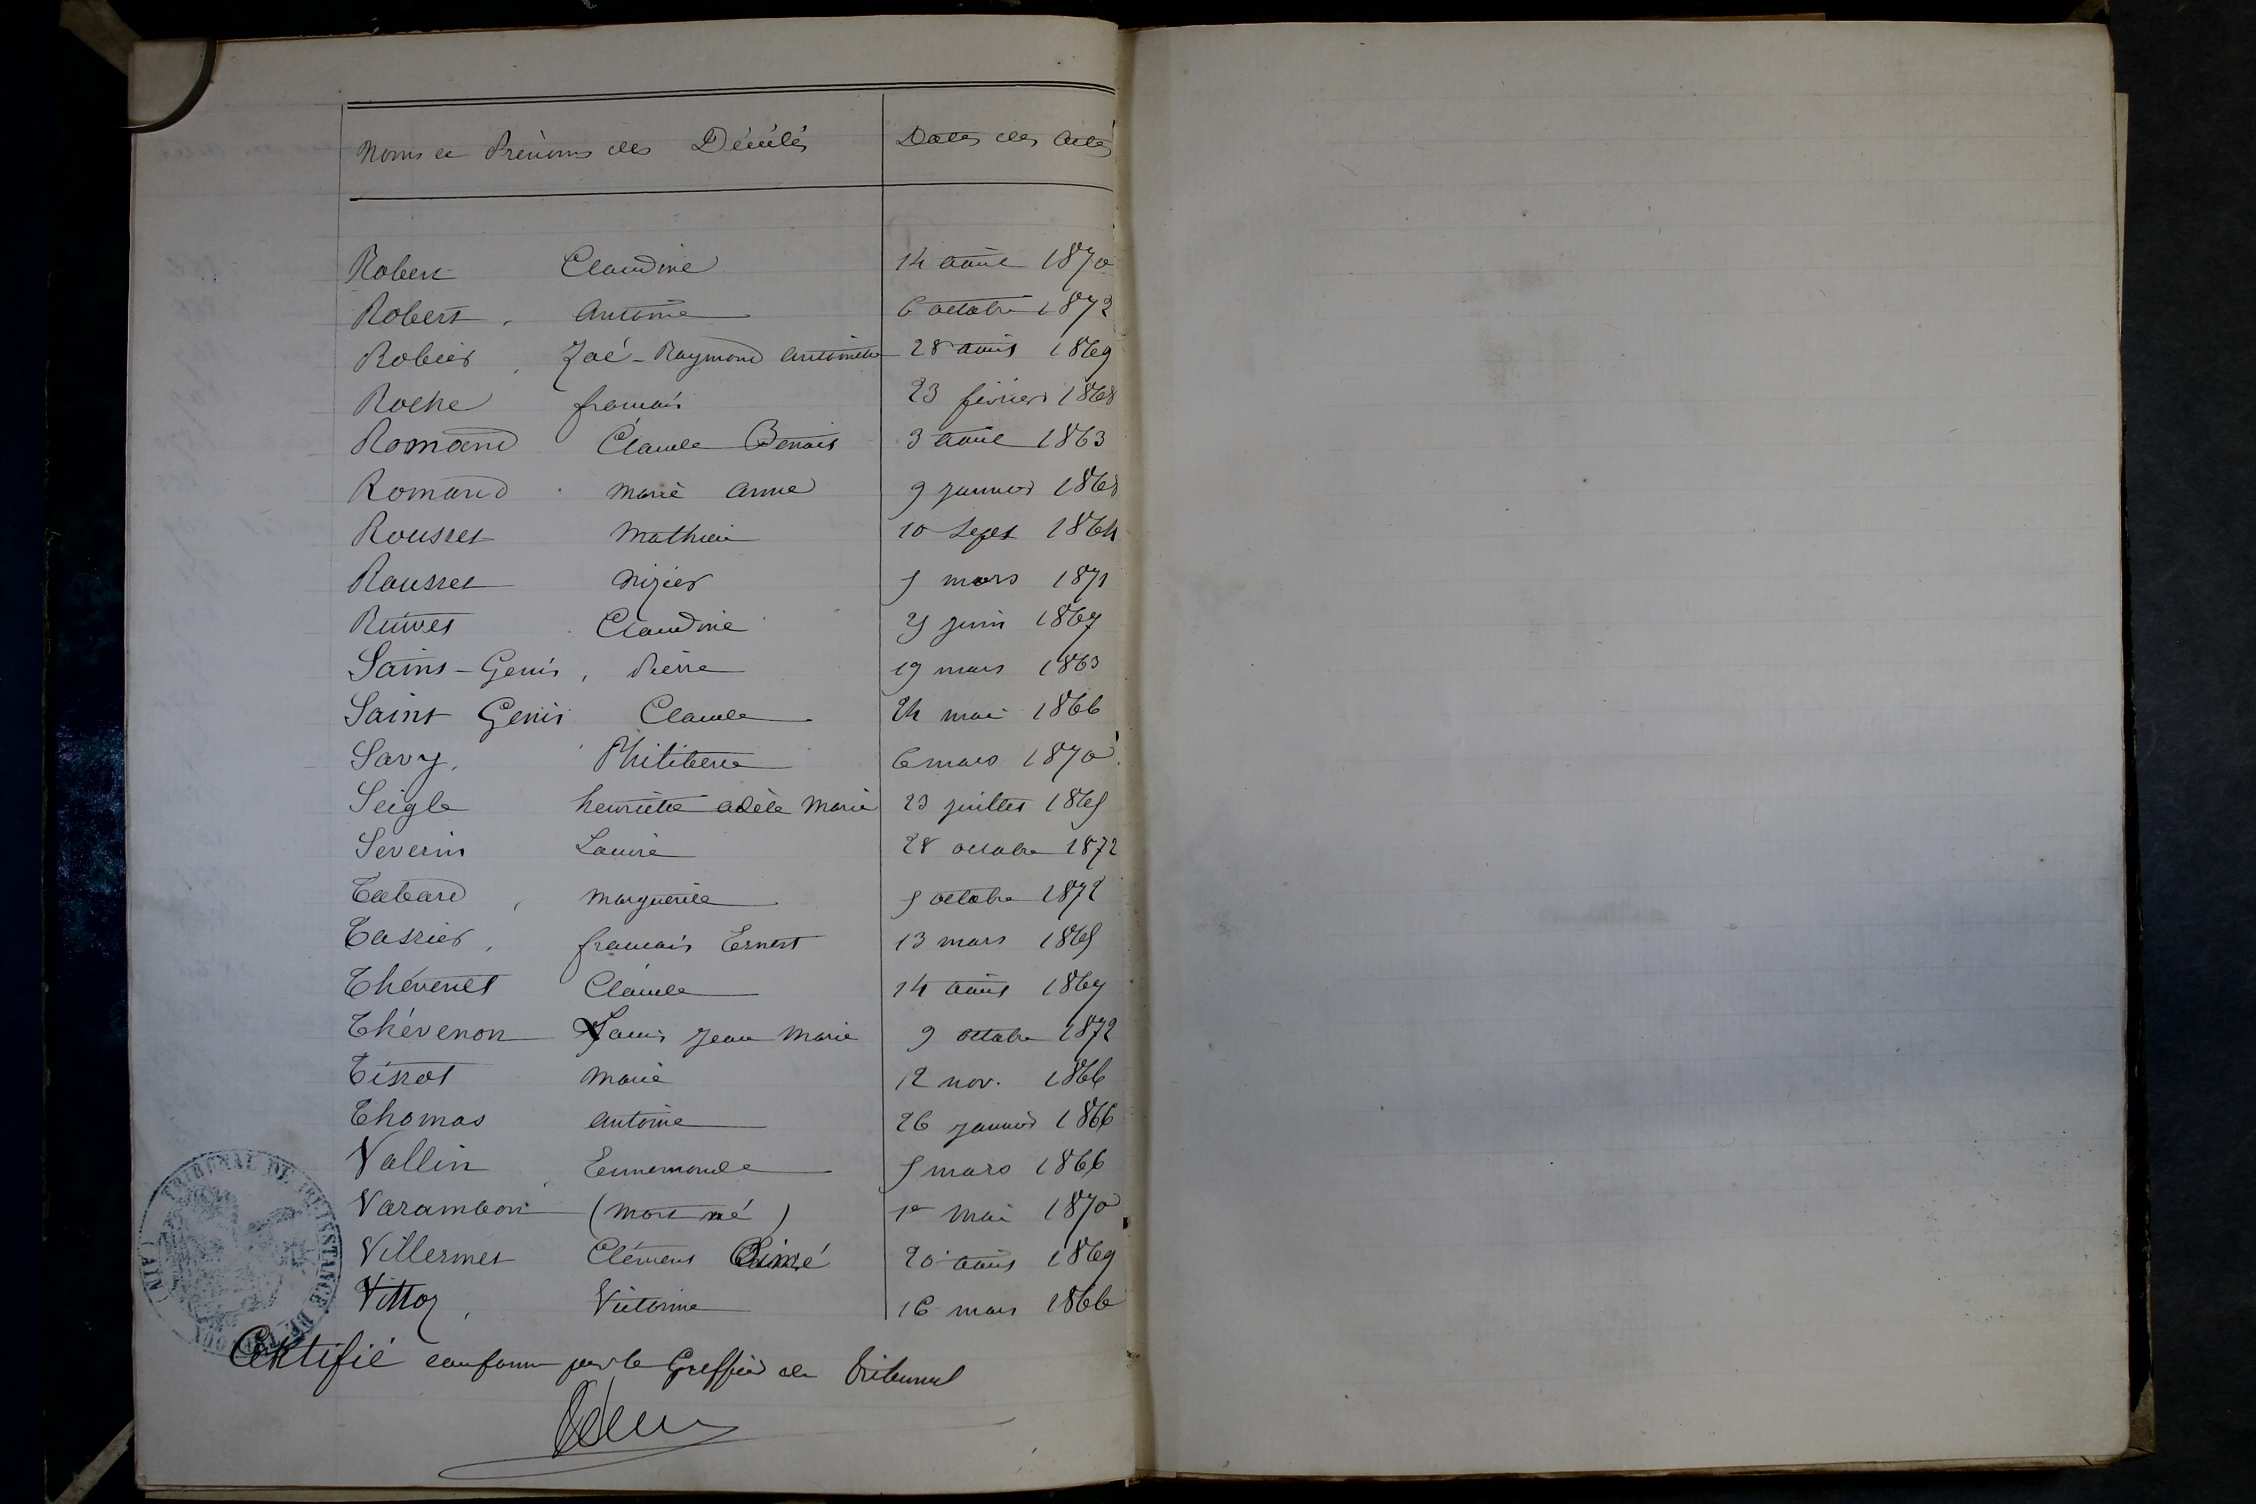 Noms et Prénoms des Décédés Dates des Actes
Robert Claudine 14 avril 1870
Robert, Antoine 6 octobre 1872
Robier, Zoé-Raymond Antoinette 28 août 1869
Roche françois 23 février 1868
Romand Claude Benoit 3 avril 1863
Romand Marie Anne 9 janvier 1868
Rousset Mathieu 10 Sept 1864
Rousset Nizier 5 mars 1871
Claudine 25 juin 1867
Saint-Genis, Pierre 19 mars 1863
Saint Genis Claude 24 mai 1866
Savy, Philiberte 6 mars 1870
Seigle henriette adèle Marie 23 juillet 1865
Severin 28 octobre 1872
Tabard, Marguerite 5 octobre 1872
Tassier, françois Ernest 13 mars 1865
Thévenet Claude 14 août 1867
Thévenon Louis Jean Marie 9 octobre 1872
Tissot Marie 12 nov. 1866
Thomas Antoine 26 janvier 1866
Vallin Ennemonde 5 mars 1866
Varambon (Mort né) 1er Mai 1870
Villermet Clément Aimé 20 août 1869
Vittoz, Victorine 16 mars 1866
TRIBUNAL DE 1RE INSTANCE DE (AIN)
Certifié conforme par le Greffier du Tribunal